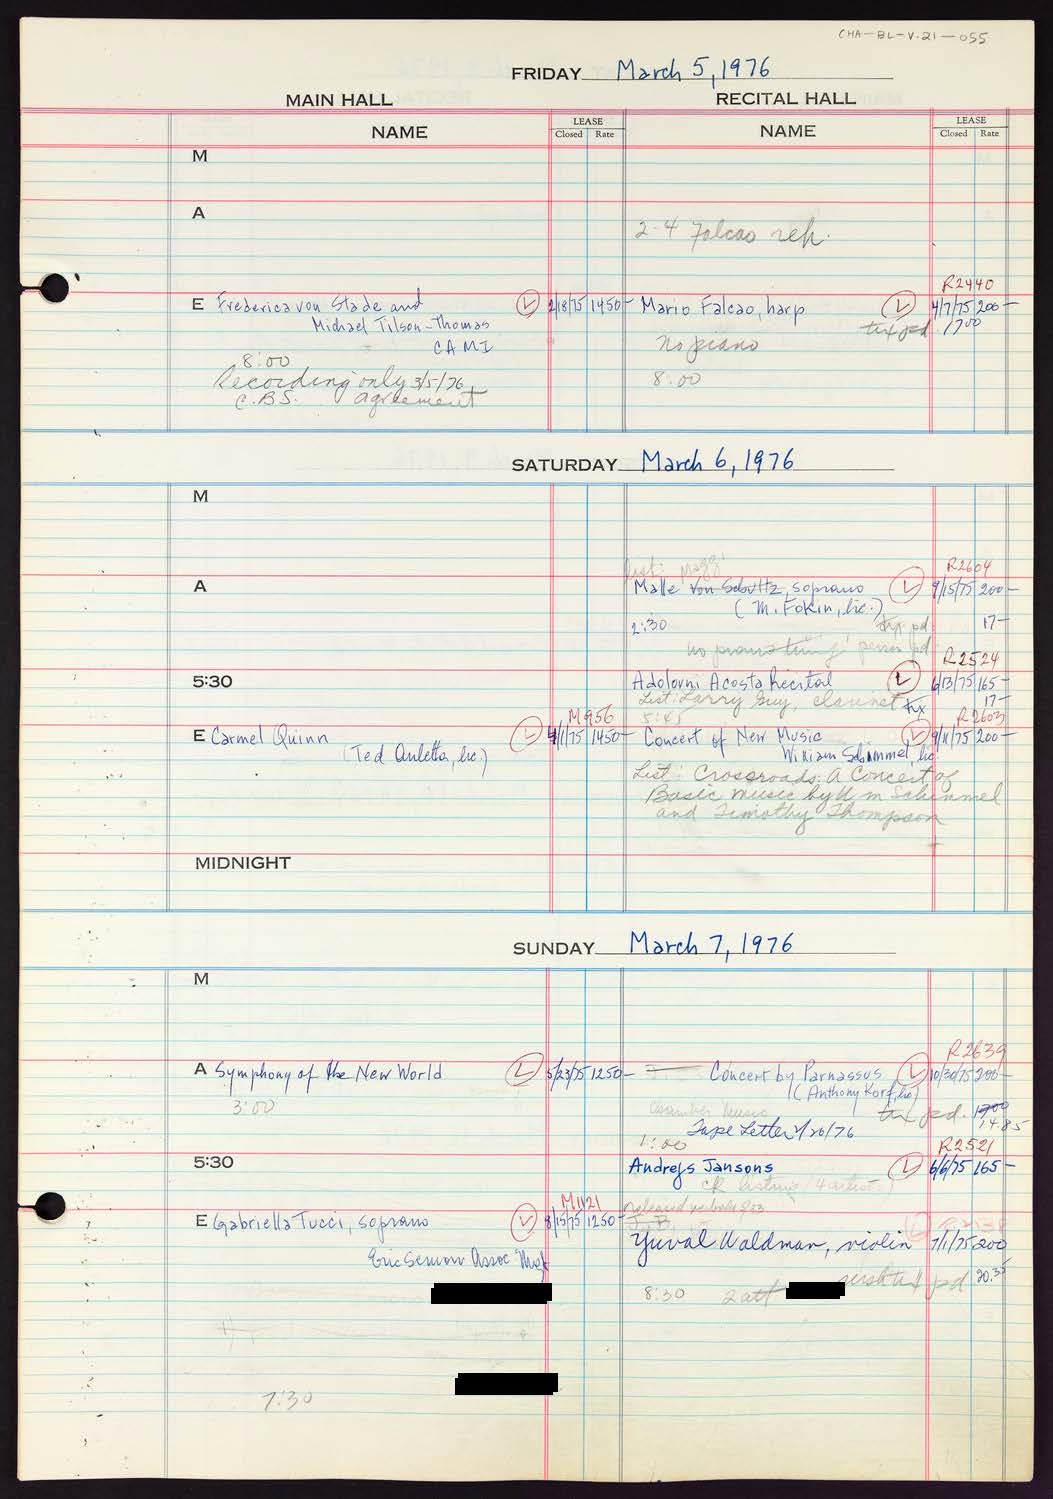 CHA-BL-V.21-055
FRIDAY March 5, 1976
MAIN HALL
RECITAL HALL
NAME
LEASE
Closed Rate
NAME
LEASE
Closed Rate
M
A
2-4 Falcao reh.
R2440
E Frederica von Stade and
Michael Tilson-Thomas
CAMI
2/18/75 1450-
8:00
Recording only 3/5/76
C.B.S. agreement
Mario Falcao, harp
4/7/75 200-
tax pd. 1700
no piano
8:00
SATURDAY March 6, 1976
M
List:
R2604
A
Malle von Schultz, soprano
9/15/75 200-
(M. Fokin, lic.)
2:30
pd. 17-
no piano tuning
pd.
R2524
5:30
Adolovni Acosta Recital
6/13/75 165-
List: Larry Guy, clarinet
17-
5:45
M956
R2603
E Carmel Quinn
4/1/75 1450-
(Ted Auletta, lic.)
Concert of New Music
9/11/75 200-
William Schimmel, lic.
List: Crossroads: A Concert of
Basic music by Wm Schimmel
and Timothy Thompson
MIDNIGHT
SUNDAY March 7, 1976
M
R2639
A Symphony of the New World
5/23/75 1250-
3:00
Concert by Parnassus
10/30/75 200-
(Anthony Korf, lic)
Chamber Music
tax pd. 1700
14.85
Tape Letter 1/20/76
1:00
R2521
5:30
Andrejs Jansons
6/6/75 165-
M1121
E Gabriella Tucci, soprano
8/15/75 1250-
Eric Semon Assoc
released
Yuval Waldman, violin
7/1/75 200
8:30
pd 20.35
7:30